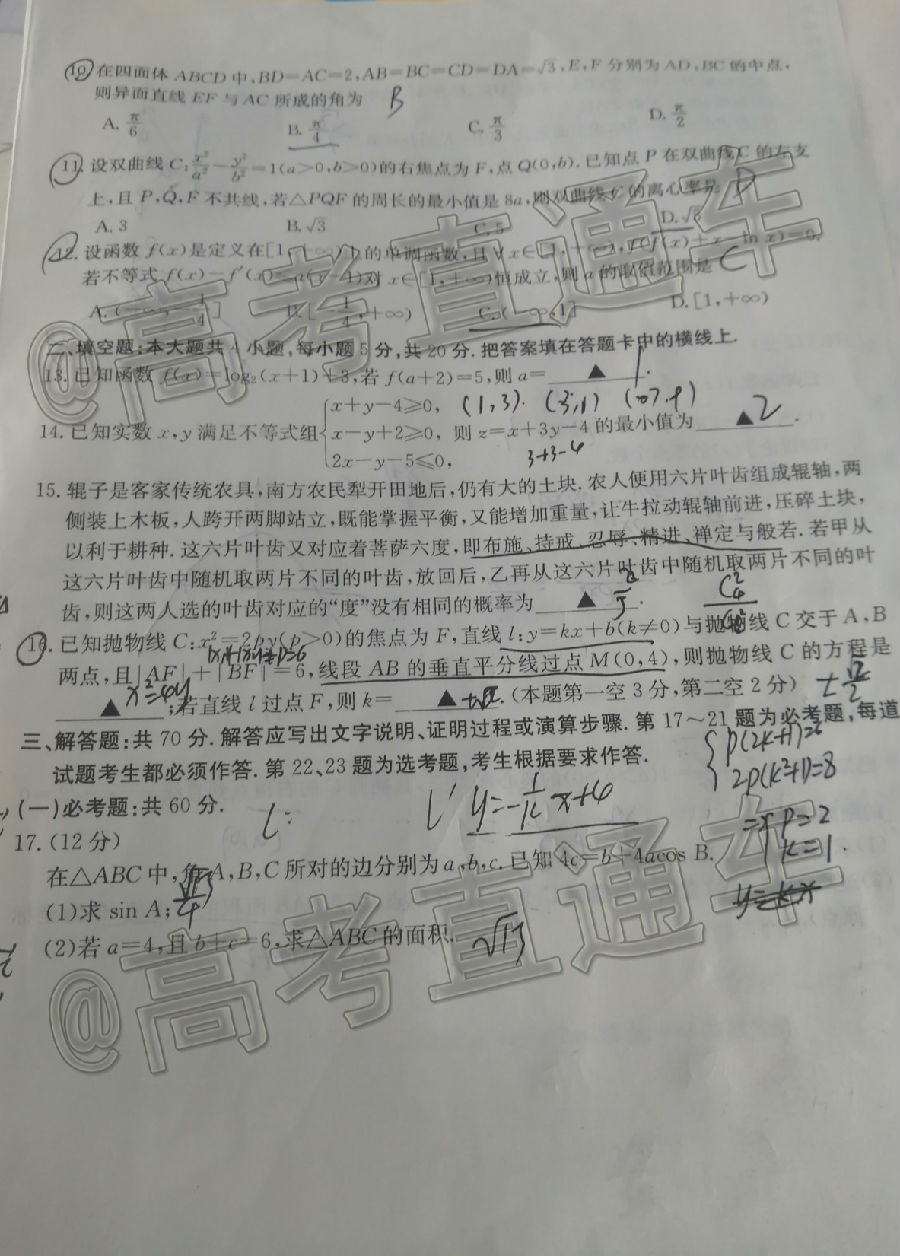 10 在四面体 ABCD 中,BD=AC=2,AB=BC=CD=DA=√3,E,F 分别为 AD,BC 的中点,
则异面直线 EF 与 AC 所成的角为 B
A. π/6 B. π/4 C. π/3 D. π/2
11. 设双曲线 C: x²/a² - y²/b² =1(a>0,b>0)的右焦点为 F,点 Q(0,b). 已知点 P 在双曲线 C 的左支
上,且 P,Q,F 不共线,若△PQF 的周长的最小值是 8a,则双曲线 C 的离心率是 D
A. 3 B. √3 C. 5 D.
12. 设函数 f(x)是定义在[1,+∞)上的单调函数,且
若不等式 f(x) 对 x∈[1,+∞)恒成立,则 a 的取值范围是 C
A. D. [1,+∞)
二、填空题:本大题共 4 小题,每小题 5 分,共 20 分. 把答案填在答题卡中的横线上.
13. 已知函数 f(x)=log₂(x+1)+3,若 f(a+2)=5,则 a= ▲ 1.
x+y-4≥0, (1,3). (3,1)
14. 已知实数 x,y 满足不等式组 x-y+2≥0, 则 z=x+3y-4 的最小值为 ▲ 2 .
2x-y-5≤0, 3+3-4
15. 辊子是客家传统农具,南方农民犁开田地后,仍有大的土块. 农人便用六片叶齿组成辊轴,两
侧装上木板,人跨开两脚站立,既能掌握平衡,又能增加重量,让牛拉动辊轴前进,压碎土块,
以利于耕种. 这六片叶齿又对应着菩萨六度,即布施、持戒、忍辱、精进、禅定与般若. 若甲从
这六片叶齿中随机取两片不同的叶齿,放回后,乙再从这六片叶齿中随机取两片不同的叶
齿,则这两人选的叶齿对应的“度”没有相同的概率为 ▲ .
16. 已知抛物线 C:x²=2py(p>0)的焦点为 F,直线 l:y=kx+b(k≠0)与抛物线 C 交于 A,B
两点,且|AF|+|BF|=6,线段 AB 的垂直平分线过点 M(0,4),则抛物线 C 的方程是
x²=4y ;若直线 l 过点 F,则 k= ▲ . (本题第一空 3 分,第二空 2 分) ±√2/2
三、解答题:共 70 分. 解答应写出文字说明、证明过程或演算步骤. 第 17～21 题为必考题,每道
试题考生都必须作答. 第 22、23 题为选考题,考生根据要求作答.
2p(k²+1)=8
(一)必考题:共 60 分.
l: l' y=-1/k x+4
p=2
k=1.
17. (12 分)
在△ABC 中,角 A,B,C 所对的边分别为 a,b,c. 已知 4c=b+4acos B.
(1)求 sin A;
(2)若 a=4,且 b+c=6,求△ABC 的面积.
@高考直通车
@高考直通车